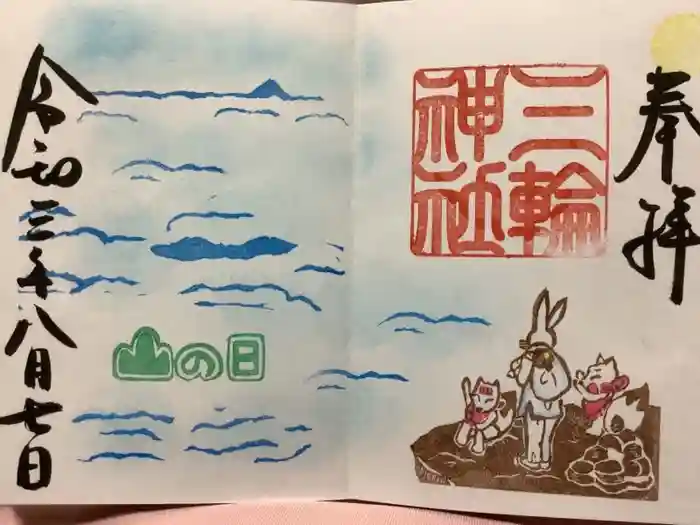 奉拝
三輪
神社
山の日
令和三年八月七日